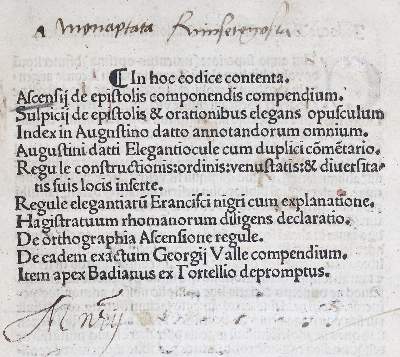 a monaptata
¶ In hoc codice contenta.
Ascensij de epistolis componendis compendium.
Sulpicij de epistolis & orationibus elegans opusculum
Index in Augustino datto annotandorum omnium.
Augustini datti Elegantiocule cum duplici cõmẽtario.
Regule constructionis:ordinis:venustatis:& diversita-
tis suis locis inserte.
Regule elegantiarũ Francisci nigri cum explanatione.
Hagistratuum rhomanorum diligens declaratio.
De orthographia Ascensione regule.
De eadem exactum Georgij Valle compendium.
Item apex Badianus ex Tortellio depromptus.